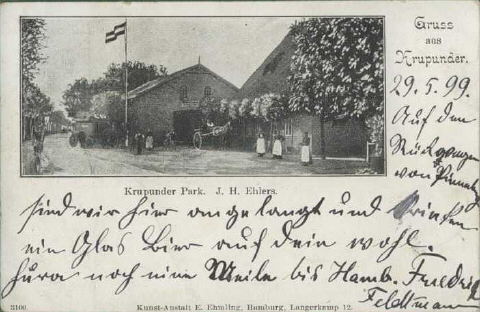 Gruss
aus
Krupunder.
29.5.99.
Auf den
Rückwegen
von Pinnebg
Krupunder Park. J. H. Ehlers.
sind wir hier angelangt und trinken
ein Glas Bier auf dein wohl.
hura noch eine Meile bis Hamb. Friedrich
Feldtmann
3100. Kunst-Anstalt E. Ehmling, Hamburg, Langerkamp 12.